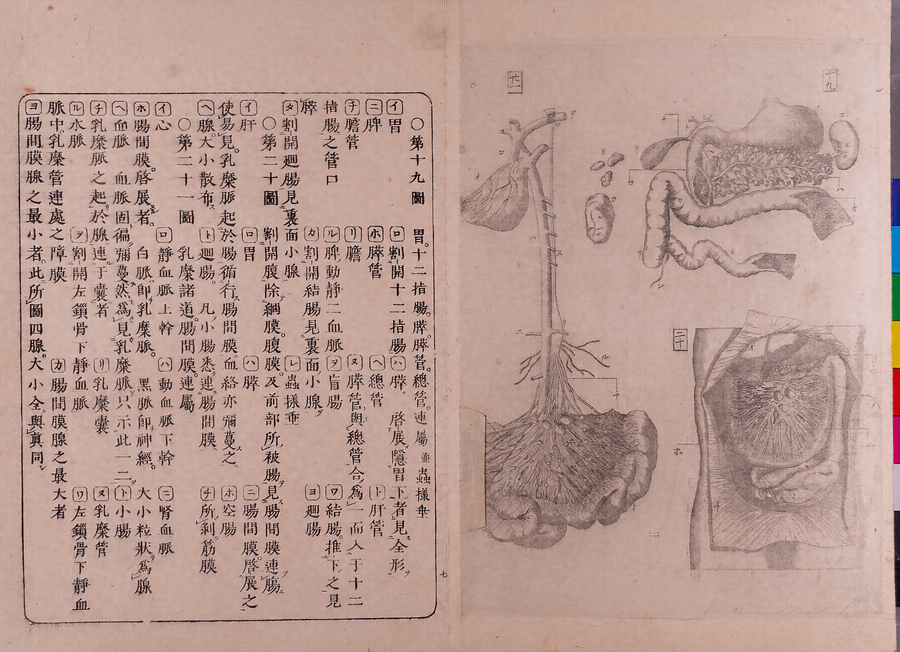 十九
廿一
二十
○第十九圖 胃。十二指腸。膵。膵管。總管。連屬 並蟲樣垂
イ胃 ロ割開十二指腸 ハ膵。啓展隱胃下者見全形
ニ脾 ホ膵管 ヘ總管 ト肝管
チ膽管 リ膽 ヌ膵管與總管合爲一而入于十二
指腸之管口 ル脾動靜二血脈 ヲ盲腸 ワ結腸。推下之見
膵 カ割開結腸見裏面小腺 ヨ廻腸
タ割開廻腸見裏面小腺 レ蟲樣垂
○第二十圖 割開腹除網膜。腹膜及前部所被腸見腸間膜連腸
イ肝 ロ胃 ハ膵 ニ腸間膜。啓展之
使易見乳糜脈起於腸循行腸間膜血絡亦彌蔓之 ホ空腸
ヘ腺。大小散布 ト廻腸。凡小腸悉連腸間膜 チ所剥筋膜
○第二十一圖 乳糜諸道。腸間膜。連屬
イ心 ロ靜血脈上幹 ハ動血脈下幹 ニ腎血脈
ホ腸間膜。啓展者。白脈卽乳糜脈。黑脈卽神經。大小粒狀爲腺
ヘ血脈 血脈固徧彌蔓然爲見乳糜脈只示此一二 ト小腸
チ乳糜脈之起於腺連于囊者 リ乳糜囊 ヌ乳糜管
ル水脈 ヲ割開左鎖骨下靜血脈 ワ左鎖骨下靜血
脈中乳糜管連處之障膜 カ腸間膜腺之最大者
ヨ腸間膜腺之最小者。此所圖四腺。大小全與眞同
七